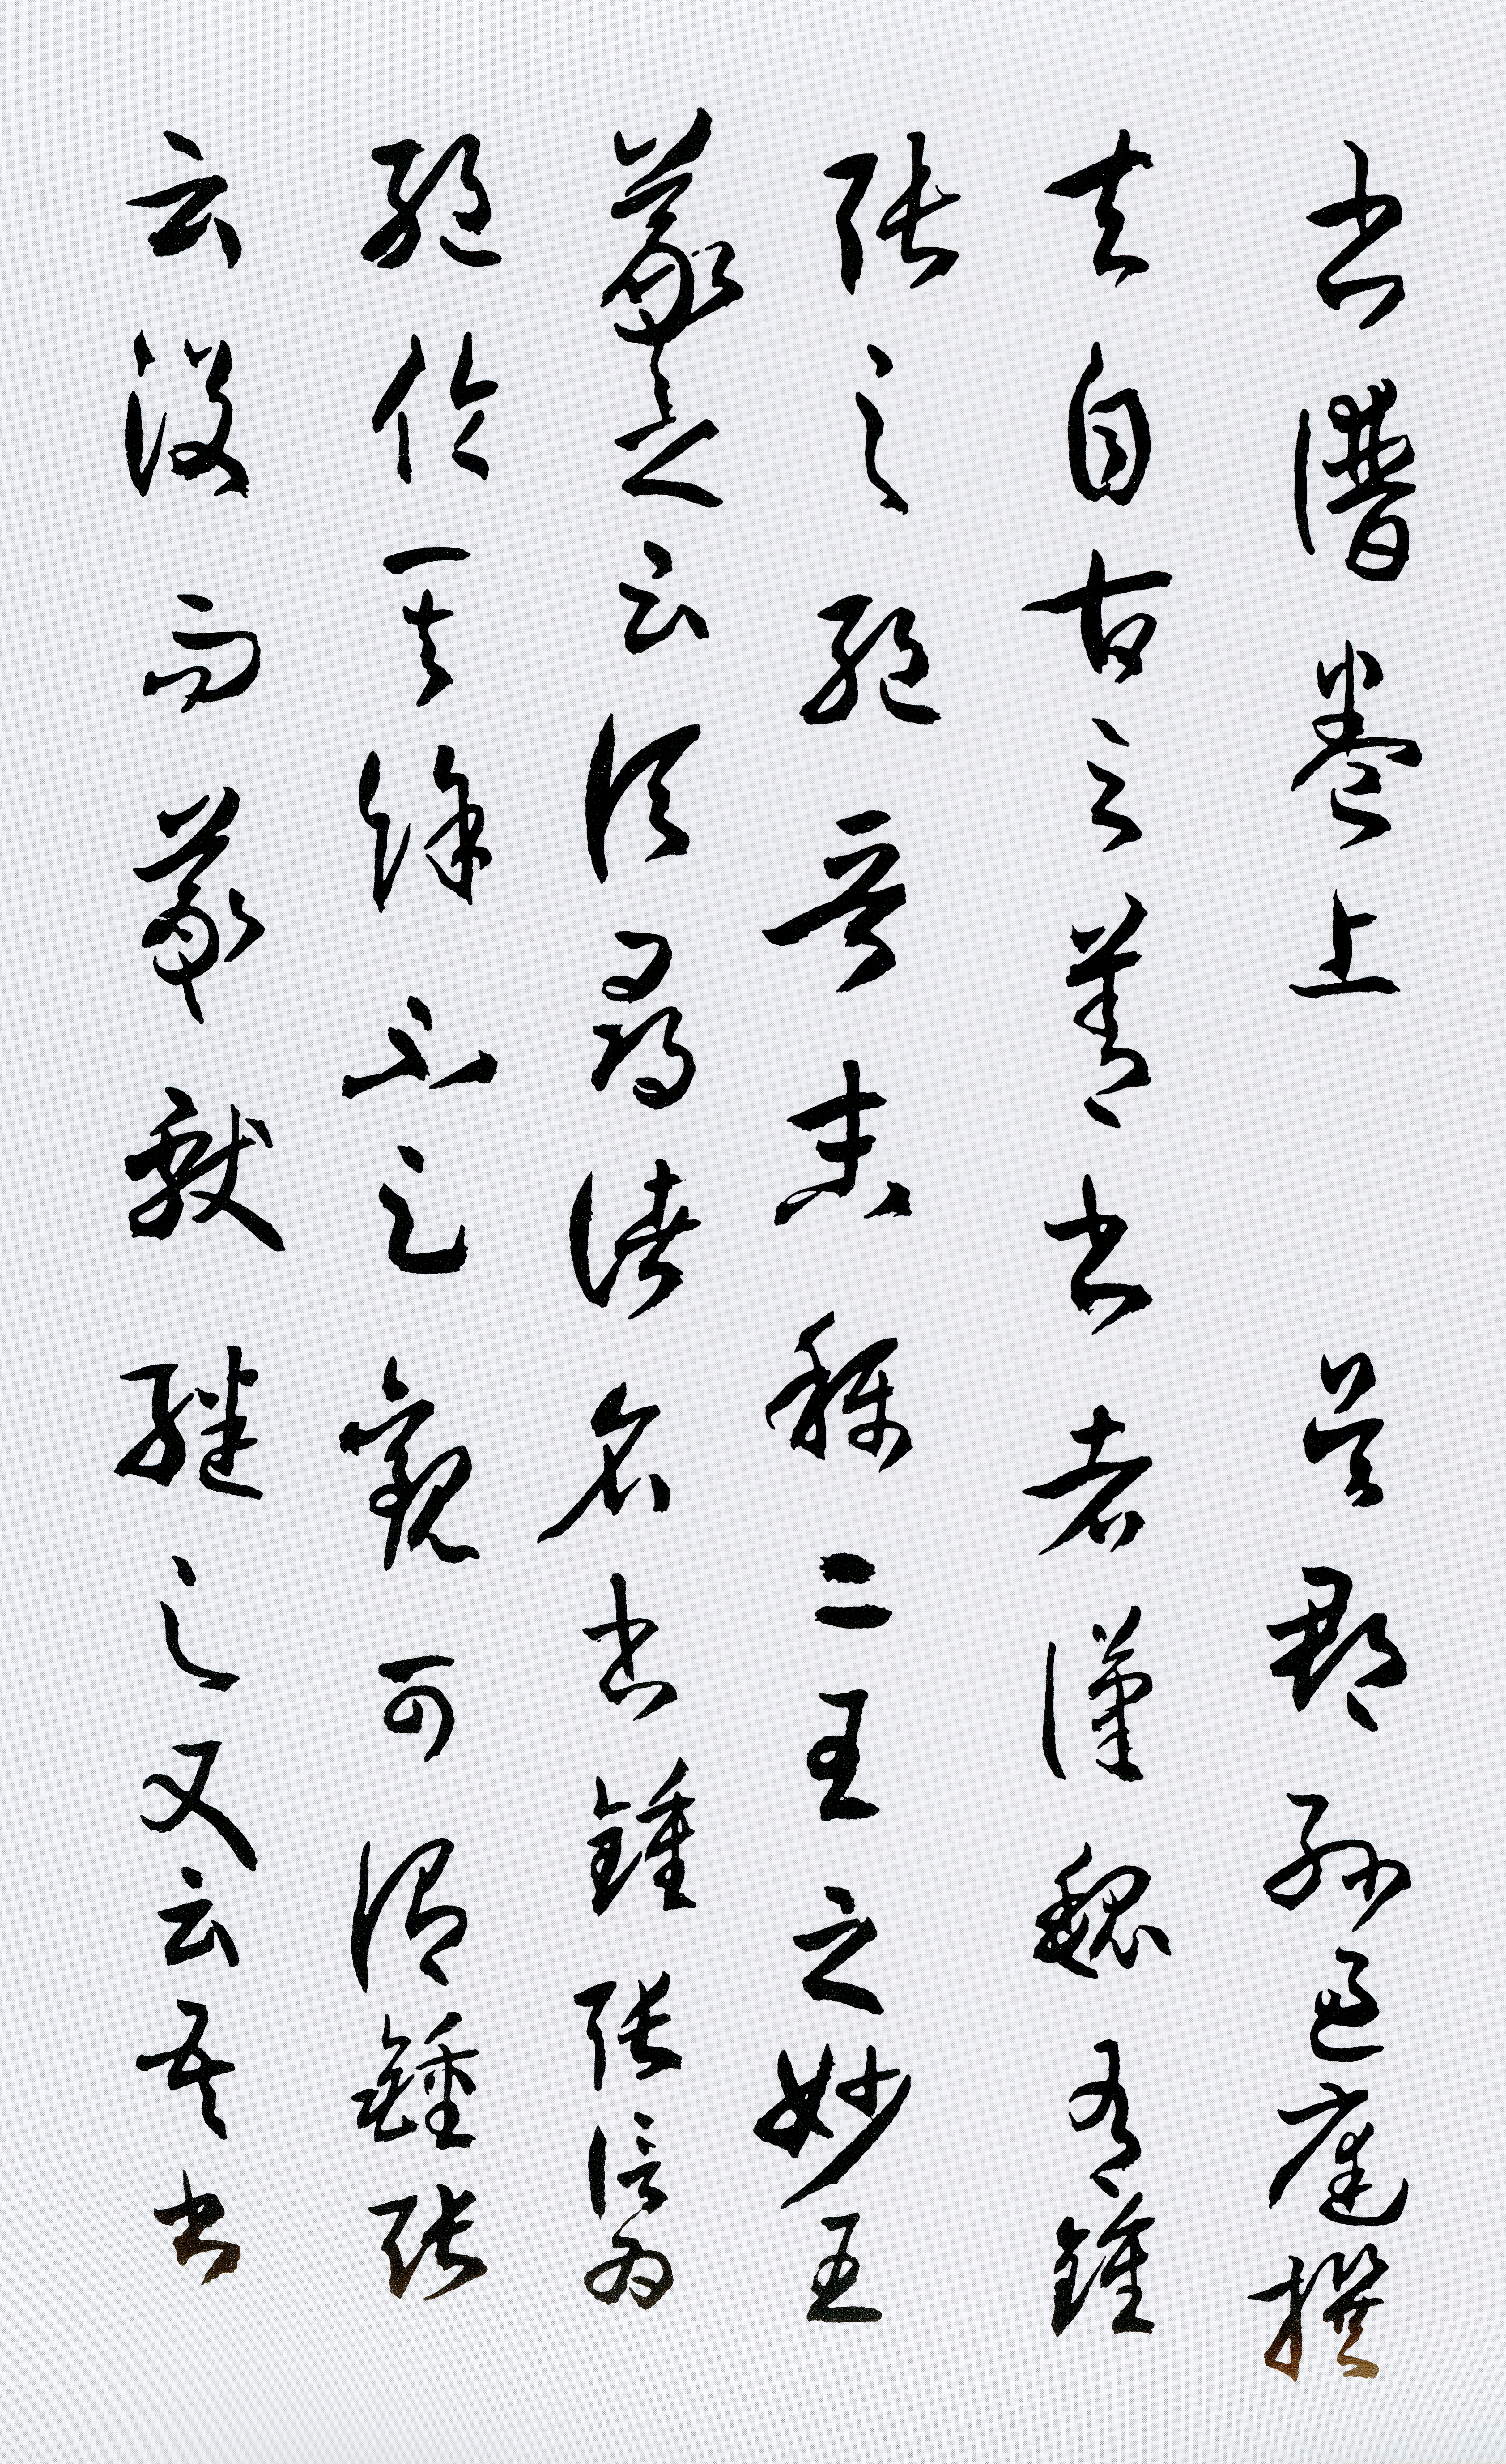 書譜卷上 吳郡孫過庭撰
夫自古之善書者漢魏有鍾
張之絕晉末稱二王之妙王
羲之云頃尋諸名書鍾張信為
絕倫其餘不足觀可謂鍾張
云沒而羲獻繼之又云吾書